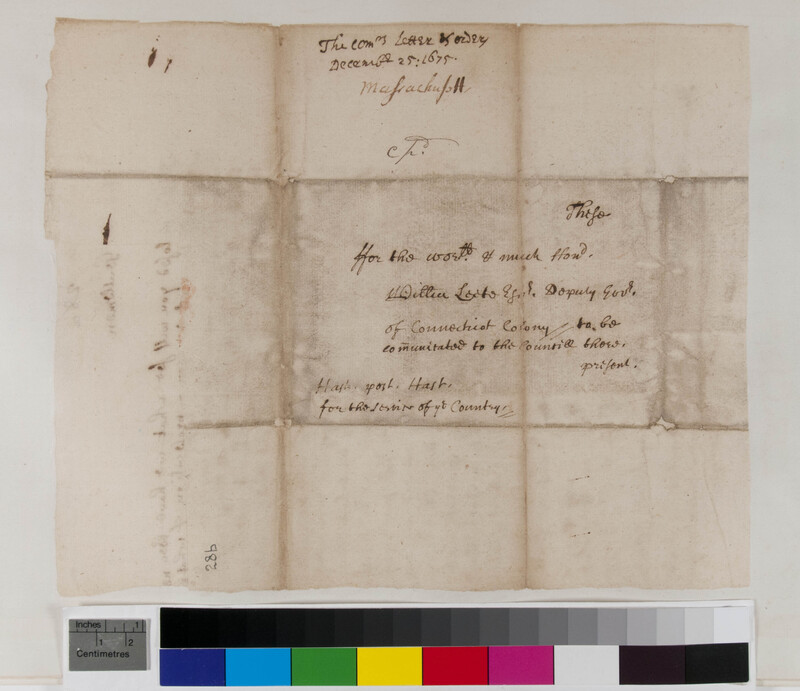 The Comrs Letter & order
Decembr 25: 1675.
Massachusett
These
ffor the worll & much Hond.
William Leete Esqr. Deputy Govr.
of Connecticot Colony to be
comunicated to the Councill there.
present.
Hast. post. Hast.
for the service of ye Country.
28b
Inches 1
1 2
Centimetres